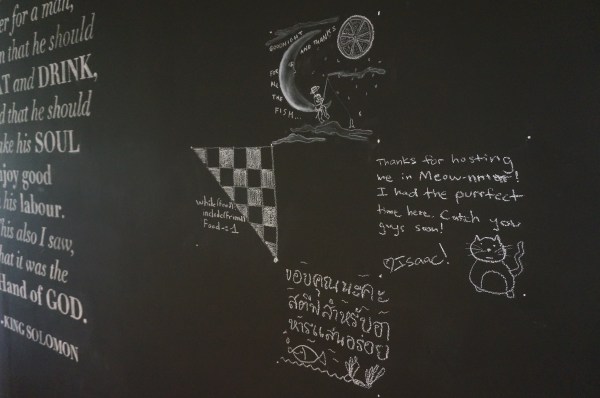 er for a man,
n that he should
AT and DRINK,
d that he should
ake his SOUL
njoy good
his labour.
This also I saw,
hat it was the
Hand of GOD.
-KING SOLOMON
GOODNIGHT AND THANKS
FOR
THE
FISH...
while (true)
Food += 1
Thanks for hosting
me in Meow-
I had the purrfect
time here. Catch you
guys soon!
♡Isaac!
ขอบคุณนะคะ
สตีฟสำหรับอา
หารแสนอร่อย